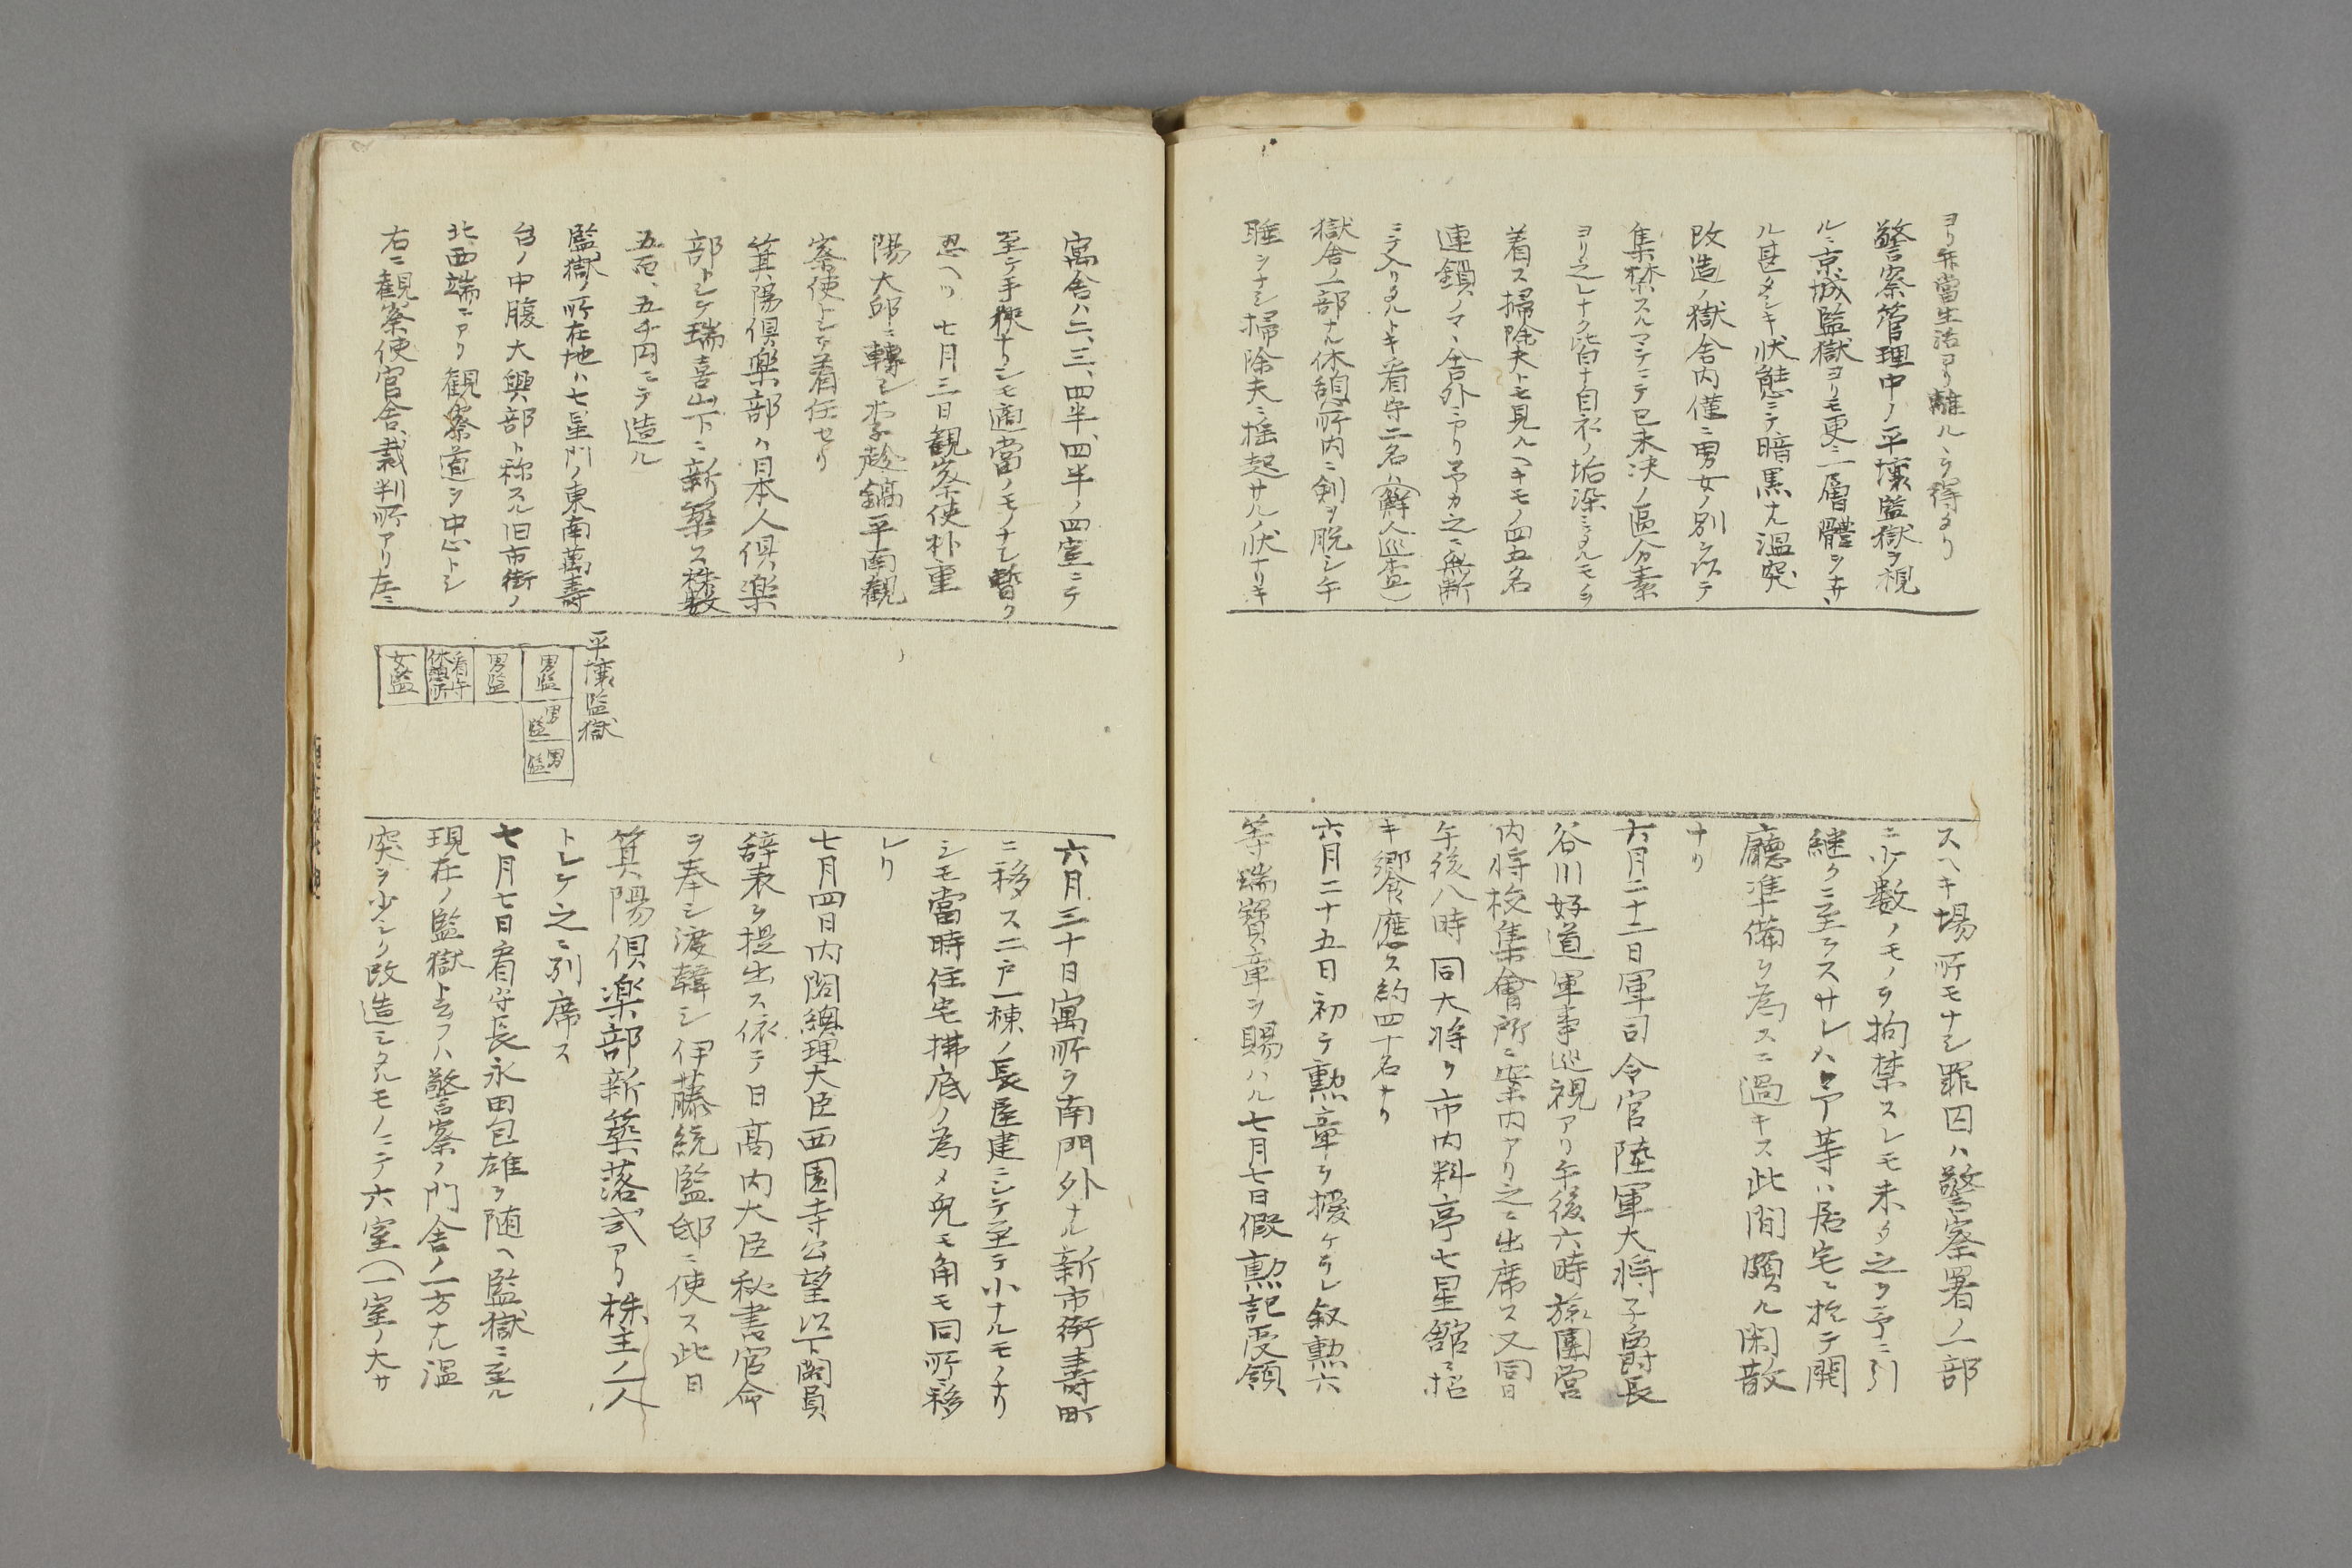 ヨリ弁當生活ヨリ離ルヽヲ得タリ
警察管理中ノ平壌監獄ヲ視
ルニ京城監獄ヨリモ更ニ一層體ヲナサヽ
ル甚タシキ状態ニテ暗黒ナル温突
改造ノ獄舎内僅ニ男女ノ別ヲ以テ
集禁スルマテニテ已未决ノ區分素
ヨリ之レナク皆白ナ白衣ノ垢染ミタルモノヲ
着ス掃除夫トモ見ルヘキモノ四五名
連鎖ノマヽ舎外ニアリ予カ之ニ無断
ニテ入リタルトキ看守二名(鮮人巡査)ハ
獄舎ノ一部ナル休憩所内ニ剣ヲ脱シ午
睡シナシ掃除夫ニ揺起サルノ状ナリキ
スヘキ場所モナシ罪囚ハ警察署ノ一部
ニ少数ノモノヲ拘禁スレモ未タ之ヲ予ニ引
継クニ至ラスサレハ予等ハ居宅ニ於テ開
廳準備ヲ為スニ過キス此間頗ル閑散
ナリ
六月二十二日軍司令官陸軍大将子爵長
谷川好道軍事巡視アリ午後六時旅團営
内将校集會所ニ案内アリ之ニ出席ス又同日
午後八時同大将ヨリ市内料亭七星舘ニ招
キ饗應ス約四十名ナリ
六月二十五日初テ勲章ヲ授ケラレ叙勲六
等瑞寳章ヲ賜ハル七月七日假勲記受領
寓舎ハ二、三、四半、四半ノ四室ニテ
至テ手狭ナシモ適當ノモノナシ暫ク
忍ヘリ七月三日観察使朴重
陽大邱ニ轉シ李趁鎬平南観
察使トシテ着任セリ
箕陽倶楽部ハ日本人倶楽
部トシテ瑞喜山下ニ新築ス株数
五百、五千円ニテ造ル
監獄ノ所在地ハ七星門ノ東南萬壽
台ノ中腹大興部ト称スル旧市街ノ
北西端ニアリ観察道ヲ中心トシ
右ニ観察使官舎、裁判所アリ左ニ
平壌監獄
男監
男監
男監
男監
看守
休憩所
女監
六月三十日寓所ヲ南門外ナル新市街壽町
ニ移ス二戸一棟ノ長屋建ニシテ至テ小ナルモノナリ
シモ當時住宅拂底ノ為メ兎モ角モ同所ニ移
レリ
七月四日内閣總理大臣西園寺公望以下閣員
辞表ヲ提出ス依テ日高内大臣秘書官命
ヲ奉シ渡韓シ伊藤統監邸ニ使ス此日
箕陽倶楽部ノ新築落式アリ株主ノ一人
トシテ之ニ列席ス
七月七日看守長永田包雄ヲ随ヘ監獄ニ至ル
現在ノ監獄ト云フハ警察ノ門舎ノ一方ナル温
突ヲ少シク改造シタルモノニテ六室(一室ノ大サ